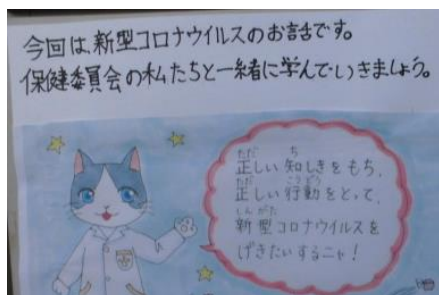 今回は、新型コロナウイルスのお話です。
保健委員会の私たちと一緒に学んでいきましょう。
ただ ち
正しい知しきをもち、
ただ こうどう
正しい行動をとって、
しんがた
新型コロナウイルスを
げきたいするニャ！